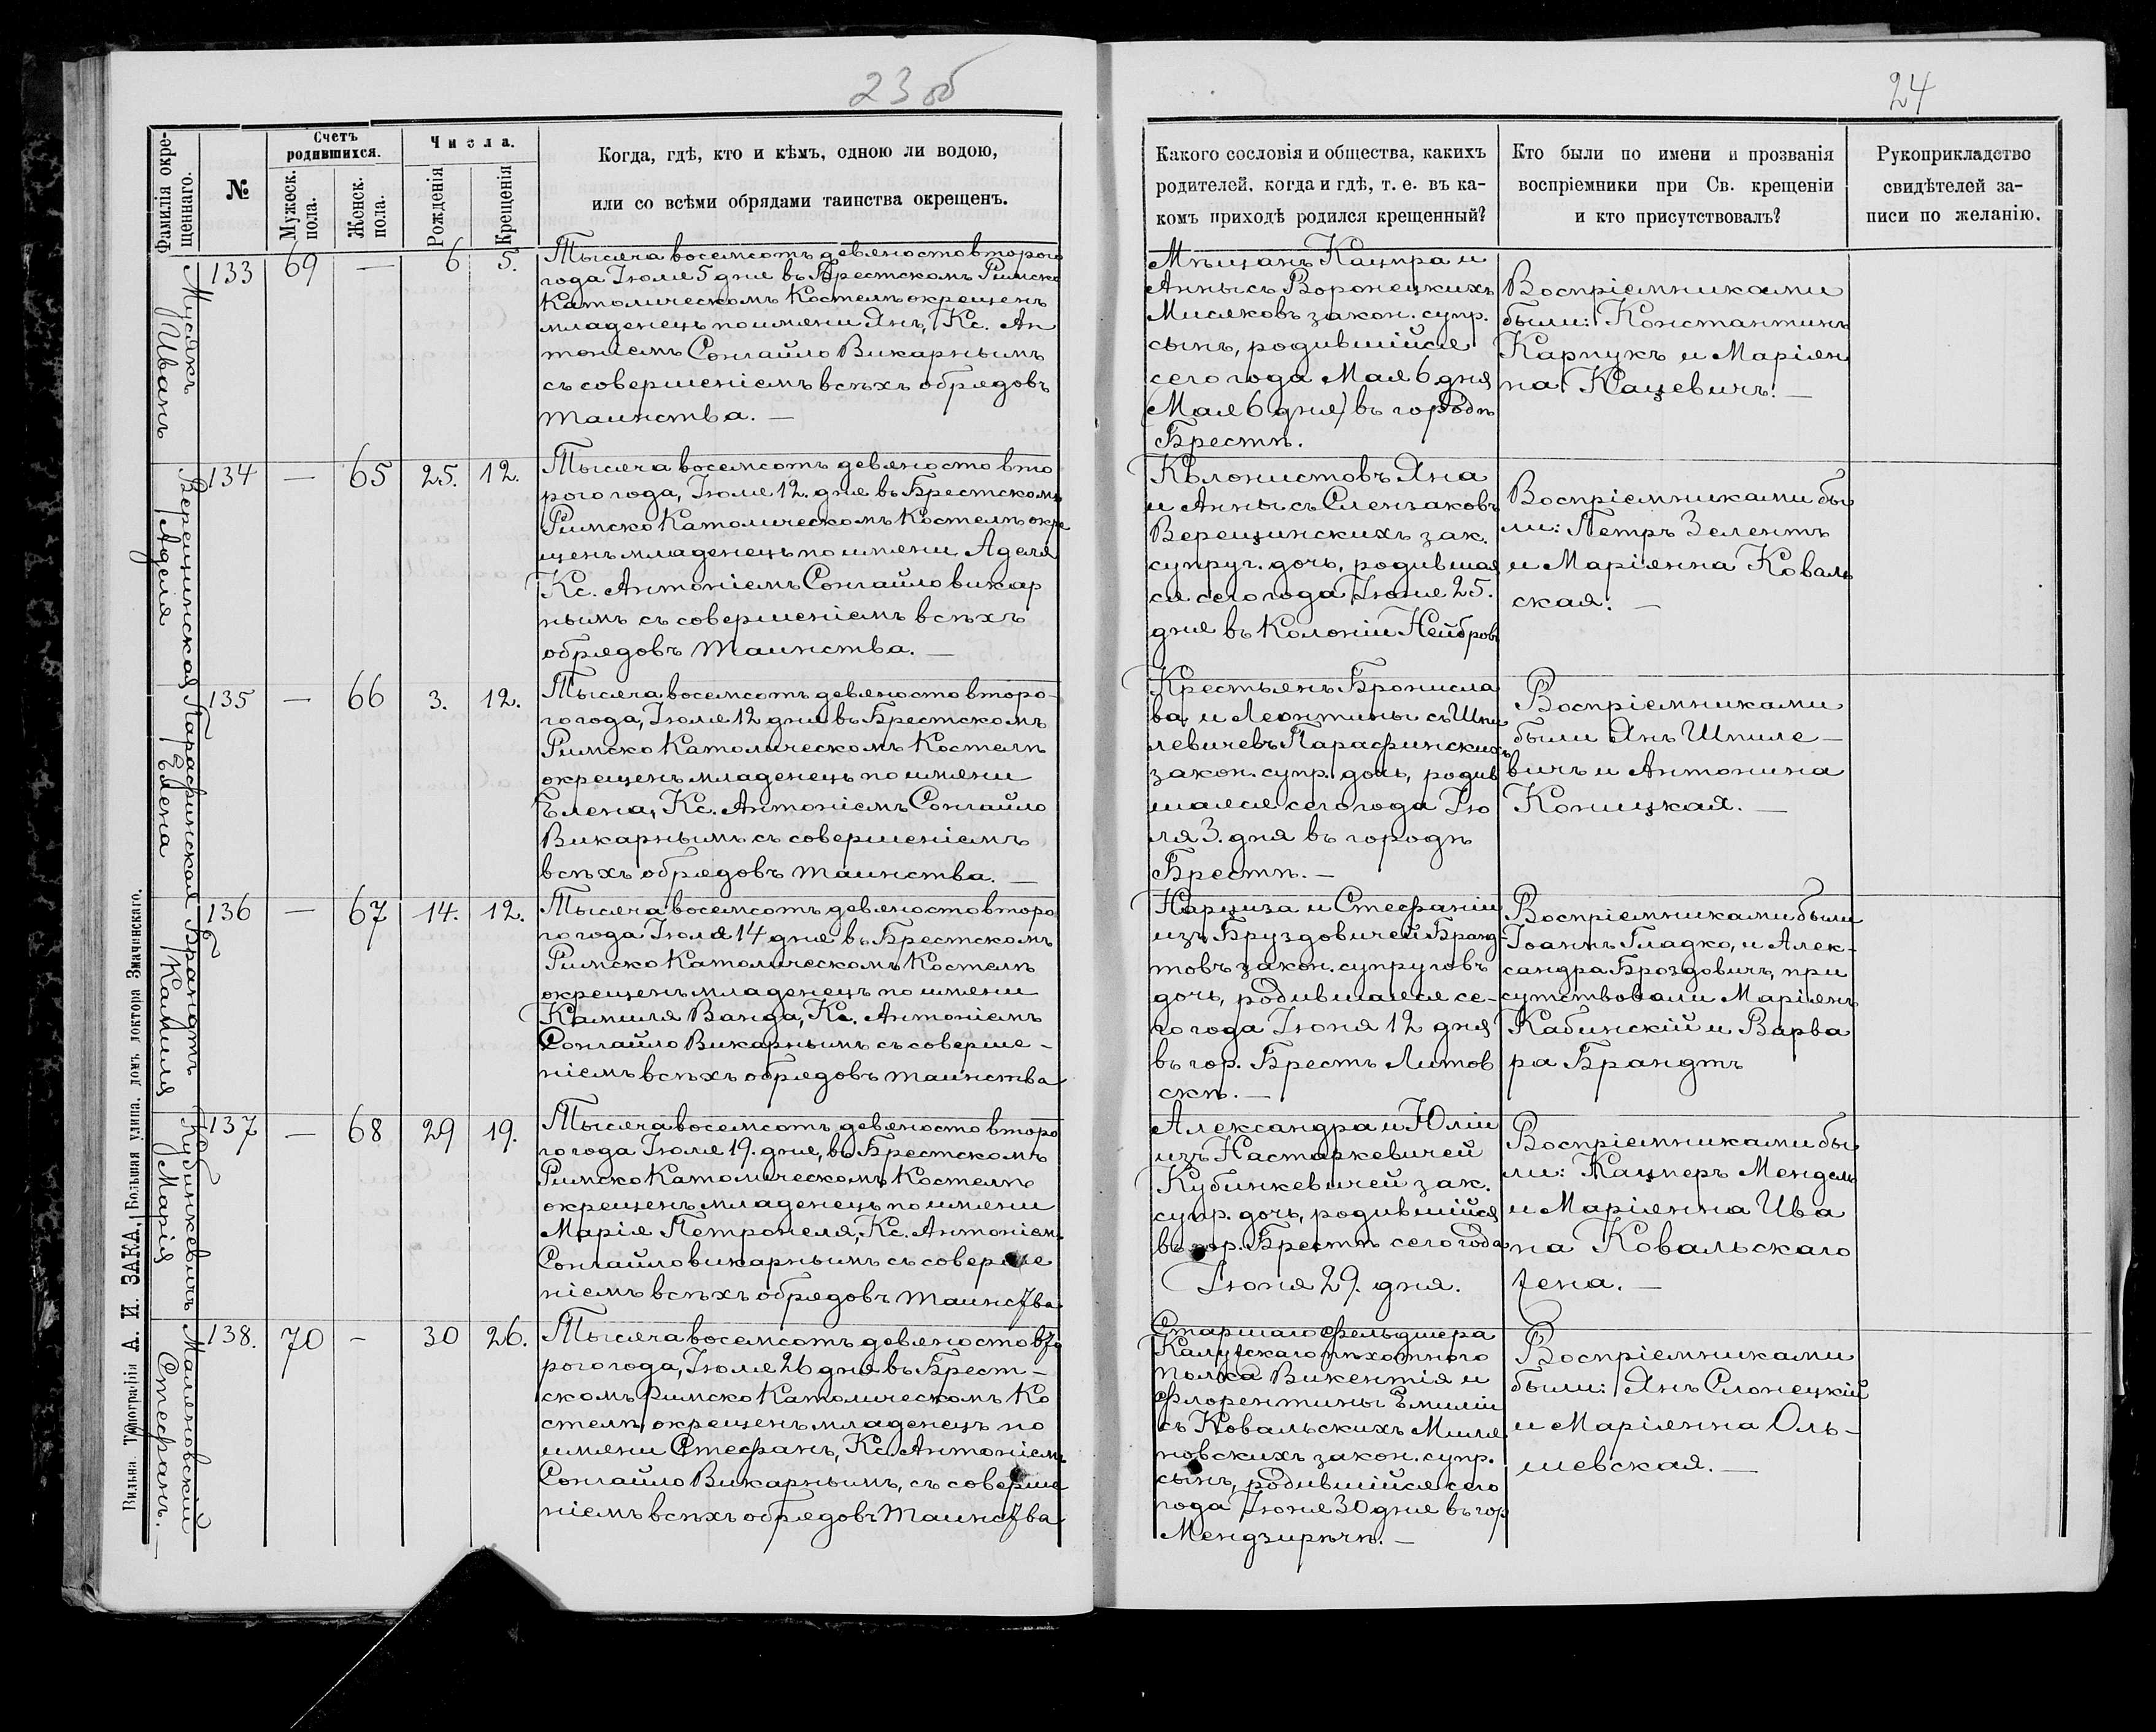 23 об
24
Фамилія окре-
щеннаго.
№
Счетъ
родившихся.
Мужеск.
пола.
Женск.
пола.
Числа.
Рожденія
Крещенія
Когда, гдѣ, кто и кѣмъ, одною ли водою,
или со всѣми обрядами таинства окрещенъ.
Какого сословія и общества, какихъ
родителей, когда и гдѣ, т. е. въ ка-
комъ приходѣ родился крещенный?
Кто были по имени и прозванія
воспріемники при Св. крещеніи
и кто присутствовалъ?
Рукоприкладство
свидѣтелей за-
писи по желанію.
Мусякъ
Иванъ
133 69 — 6 5.
Тысяча восемсотъ девяносто второго
года Іюля 5 дня въ Брестскомъ Римско
Католическомъ Костелѣ окрещенъ
младенецъ по имени Янъ, Кс. Ан
тоніемъ Сонгайло Викарнымъ
съ совершеніемъ всѣхъ обрядовъ
таинства. —
Мѣщанъ Кацпра и
Анны съ Воронецкихъ
Мисяковъ закон. супр.
сынъ, родившійся
сего года Мая 6 дня
(Мая 6 дня) въ городѣ
Брестѣ.
Воспріемниками
были: Константинъ
Карпукъ и Маріян
на Кацевичъ. —
Верещинская
Аделя
134 — 65 25. 12.
Тысяча восемсотъ девяносто вто
рого года, Іюля 12. дня въ Брестскомъ
Римско Католическомъ Костелѣ окре
щенъ младенецъ по имени Аделя
Кс. Антоніемъ Сонгайло викар
нымъ съ совершеніемъ всѣхъ
обрядовъ таинства. —
Колонистовъ Яна
и Анны съ Слензаковъ
Верещинскихъ зак.
супруг. дочь, родившая
ся сего года Іюня 25.
дня въ Колоніи Нейбровъ
Воспріемниками бы
ли: Петръ Зелентъ
и Маріянна Коваль
ская. —
Парафинская
Елена
135 — 66 3. 12.
Тысяча восемсотъ девяносто второ-
го года, Іюля 12 дня въ Брестскомъ
Римско Католическомъ Костелѣ
окрещенъ младенецъ по имени
Елена, Кс. Антоніемъ Сонгайло
Викарнымъ съ совершеніемъ
всѣхъ обрядовъ таинства. —
Крестьянъ Бронисла
ва и Леонтины съ Шпи
левичевъ Парафинскихъ
закон. супр. дочь, родив
шаяся сего года Ію
ля 3. дня въ городѣ
Брестѣ. —
Воспріемниками
были Янъ Шпиле-
вичъ и Антонина
Коницкая. —
Брандтъ
Камиля
136 — 67 14. 12.
Тысяча восемсотъ девяносто второ
го года Іюля 14 дня въ Брестскомъ
Римско Католическомъ Костелѣ
окрещенъ младенецъ по имени
Камиля Ванда, Кс. Антоніемъ
Сонгайло Викарнымъ съ соверше-
ніемъ всѣхъ обрядовъ таинства
Нарциза и Стефаніи
изъ Бруздовичей Бранд-
товъ закон. супруговъ
дочь, родившаяся се-
го года Іюня 12 дня
въ гор. Брестъ Литов
скѣ. —
Воспріемниками были
Іоаннъ Гладко, и Алек-
сандра Броздовичъ, при
сутствовали Маріянъ
Кабинскій и Варва
ра Брандтъ
Кубинкевичъ
Марія
137 — 68 29 19.
Тысяча восемсотъ девяносто второ
го года Іюля 19. дня, въ Брестскомъ
Римско Католическомъ Костелѣ
окрещенъ младенецъ по имени
Марія Петронеля, Кс. Антоніем.
Сонгайло викарнымъ съ соверше
ніемъ всѣхъ обрядовъ таинства
Александра и Юліи
изъ Настаркевичей
Кубинкевичей зак.
супр. дочь, родившійся
въ гор. Брестѣ сего года
Іюня 29. дня.
Воспріемниками бы
ли: Кацперъ Мендель
и Маріянна Ива
на Ковальскаго
жена. —
Маляновскій
Стефанъ. —
138. 70 - 30 26.
Тысяча восемсотъ девяносто вто
рого года, Іюля 26 дня въ Брест-
скомъ Римско Католическомъ Ко
стелѣ окрещенъ младенецъ по
имени Стефанъ, Кс. Антоніемъ
Сонгайло Викарнымъ, съ соверше
ніемъ всѣхъ обрядовъ таинства
Старшаго фельдшера
Калужскаго пѣхотнаго
полка Викентія и
Флорентины Емиліи
съ Ковальскихъ Миля
новскихъ закон. супр.
сынъ, родившійся сего
года Іюня 30 дня въ гор
Мендзирѣчѣ. —
Воспріемниками
были: Янъ Слонецкій
и Маріянна Оль-
шевская. —
Вильна. Типографія А. И. ЗАКА, Большая улица, домъ доктора Змачинскаго.